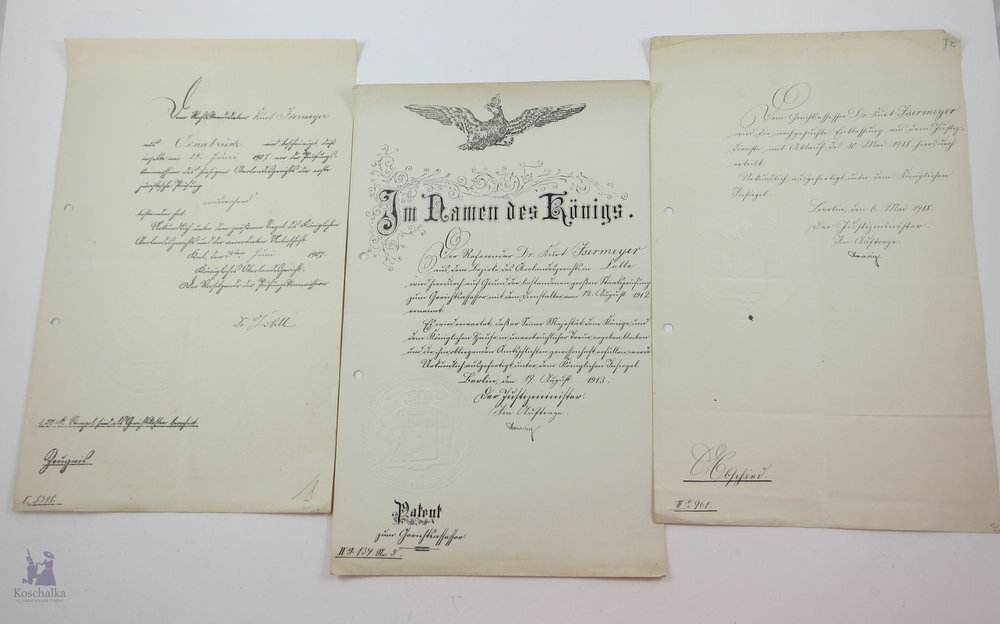 Dem Rechtskandidaten Kurt Isermeyer
aus Osnabrück wird bescheinigt, daß
derselbe am 29. Juni 1907 vor der Prüfungs-
kommission des hiesigen Oberlandesgerichts die erste
juristische Prüfung
ausreichend
bestanden hat.
Urkundlich unter dem größeren Siegel des Königlichen
Oberlandesgerichts und der verordneten Unterschrift.
Kiel, den 29ten Juni 1907.
Königliches Oberlandesgericht.
Der Vorsitzende der Prüfungskommission
Zeugnis
Im Namen des Königs.
Der Referendar Dr. Kurt Isermeyer
aus dem Bezirke des Oberlandesgerichts in Celle
wird hierdurch auf Grund der bestandenen großen Staatsprüfung
zum Gerichtsassessor mit dem Dienstalter vom 12. August 1912
ernannt.
Es wird erwartet, daß er Seiner Majestät dem Könige und
dem Königlichen Hause in unverbrüchlicher Treue ergeben bleiben
und die ihm obliegenden Amtspflichten gewissenhaft erfüllen werde.
Urkundlich ausgefertigt unter dem Königlichen Insiegel
Berlin, den 19. August 1913.
Der Justizminister.
Im Auftrage.
Patent
zum Gerichtsassessor
72
Dem Gerichtsassessor Dr. Kurt Isermeyer
wird die nachgesuchte Entlassung aus dem Justiz-
dienste mit Ablauf des 10. Mai 1918 hierdurch
erteilt.
Urkundlich ausgefertigt unter dem Königlichen
Insiegel.
Berlin, den 6. Mai 1918.
Der Justizminister
Im Auftrage.
Abschied.
Koschalka